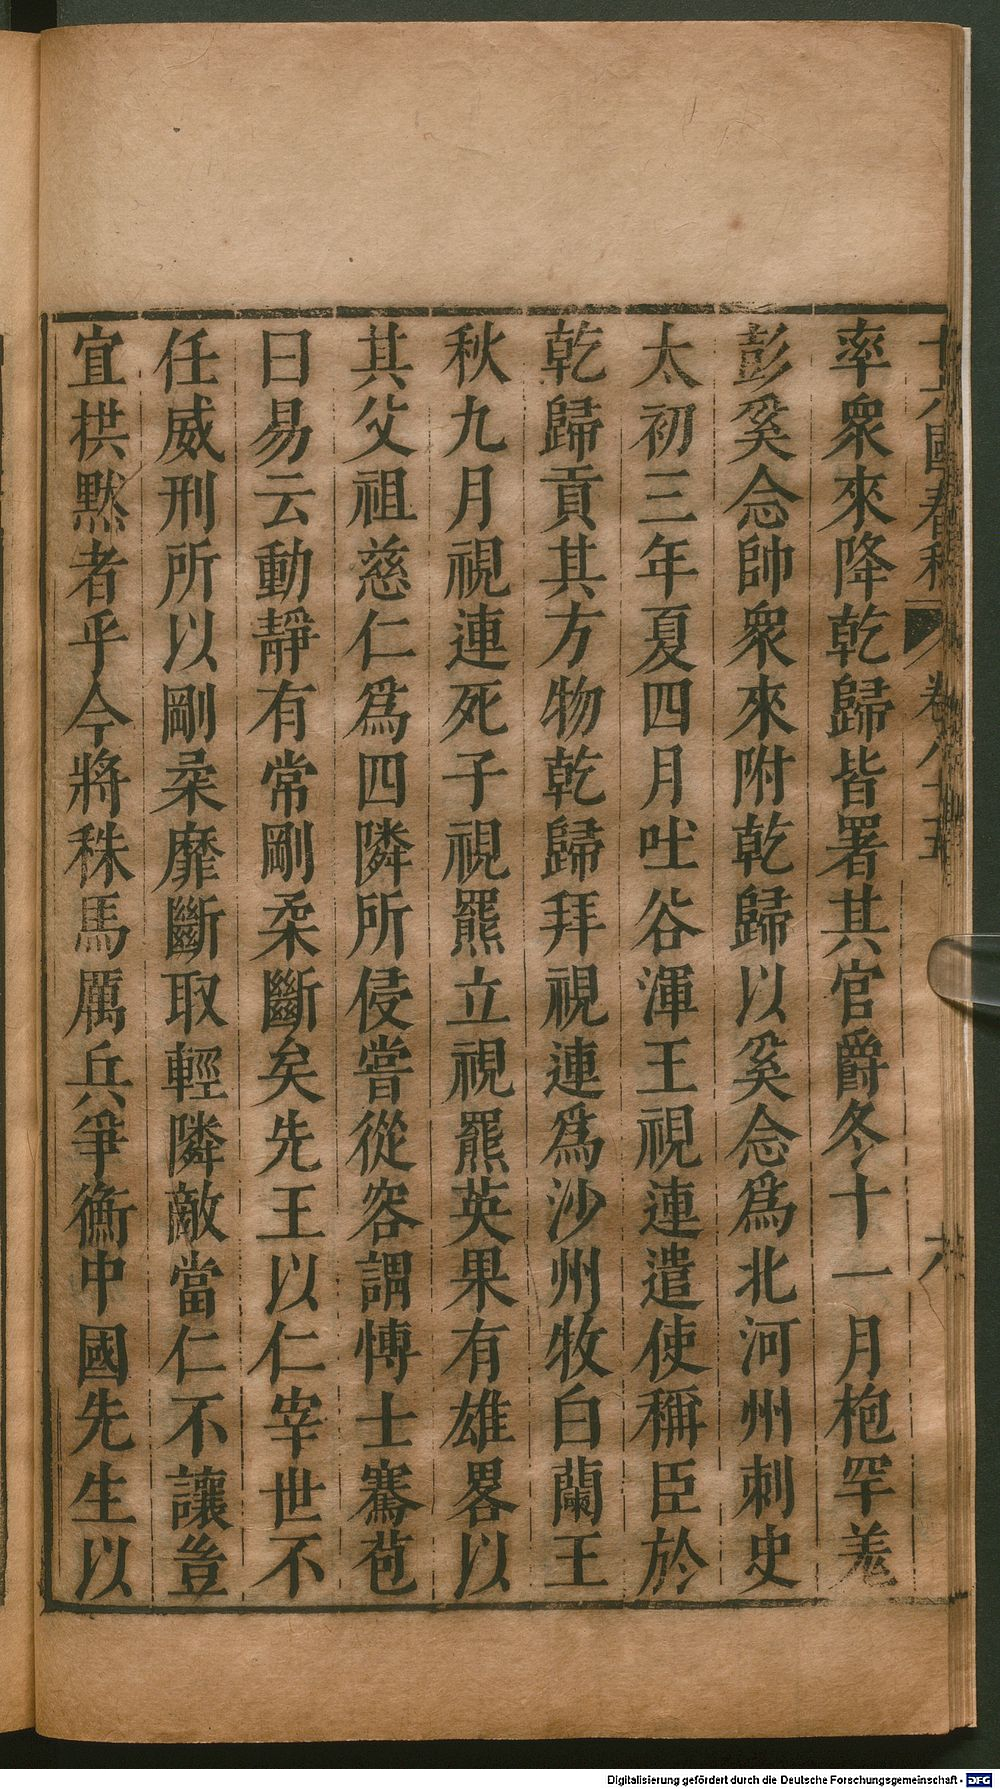 十六國春秋 卷八十五 六
率衆來降乾歸皆署其官爵冬十一月枹罕羗
彭奚念帥衆來附乾歸以奚念爲北河州刺史
太初三年夏四月吐谷渾王視連遣使稱臣於
乾歸貢其方物乾歸拜視連爲沙州牧白蘭王
秋九月視連死子視羆立視羆英果有雄畧以
其父祖慈仁爲四隣所侵嘗從容謂博士騫苞
曰易云動靜有常剛柔斷矣先王以仁宰世不
任威刑所以剛柔靡斷取輕隣敵當仁不讓豈
宜拱默者乎今將秣馬厲兵爭衡中國先生以
Digitalisierung gefördert durch die Deutsche Forschungsgemeinschaft - DFG